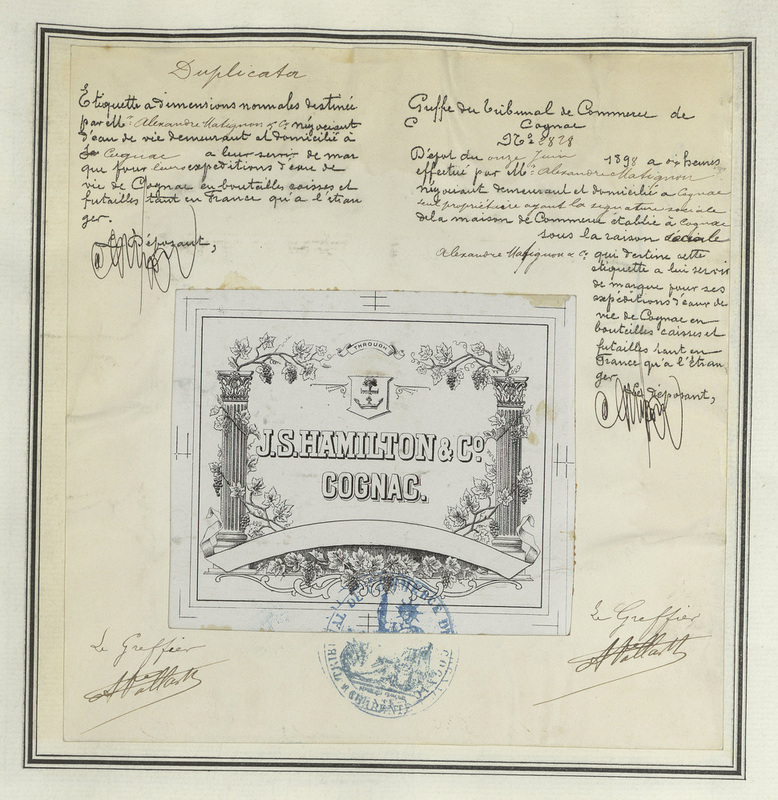 Duplicata
Etiquette a dimensions normales destinée
par Mr. Alexandre Matignon & Cie négociant
d'eau de vie demeurant et domicilié à
Cognac a leur servir de mar
que pour leurs expéditions d'eau de
vie de Cognac en bouteilles caisses et
futailles tant en France qu'a l'étran
ger.
Le Déposant,
Greffe du Tribunal de Commerce de
Cognac
No 2828
Dépot du onze Juin 1898 a dix heures
effectué par Mr. Alexandre Matignon
Négociant demeurant et domicilié a Cognac
seul propriétaire ayant la signature sociale
de la maison de Commerce établie à Cognac
sous la raison sociale
Alexandre Matignon & Cie qui destine cette
étiquette a lui servir
de marque pour ses
expéditions d'eaux de
vie de Cognac en
bouteilles caisses et
futailles tant en
France qu'a l'étran
ger.
Le déposant,
THROUGH
J.S. HAMILTON & Co.
COGNAC.
TRIBUNAL DE COMMERCE DE COGNAC
CHARENTE
Le Greffier
Le Greffier